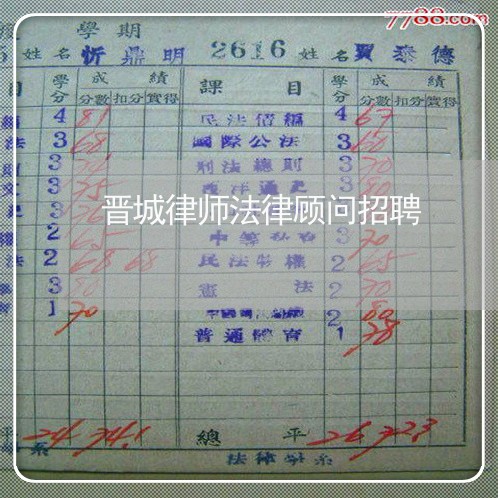 7788.com
學期
5 姓名 忻鼎明 2616 姓名 賈泰德
目 學分 成績 分數 扣分 實得 課目 學分 成績 分數 扣分 實得
4 81 民法債編 4 67
法 3 68 國際公法 3 60
3 刑法總則 3 70
文 3 75 西洋通史 3 80
3
晋城律师法律顾问招聘
2 65 3 70
法 2 68 68 民法物權 2 65
3 80 憲法 2 70
1 70 2 80
普通體育 1 78
平 24 74.1 總平 26 72.3
系 法律學系